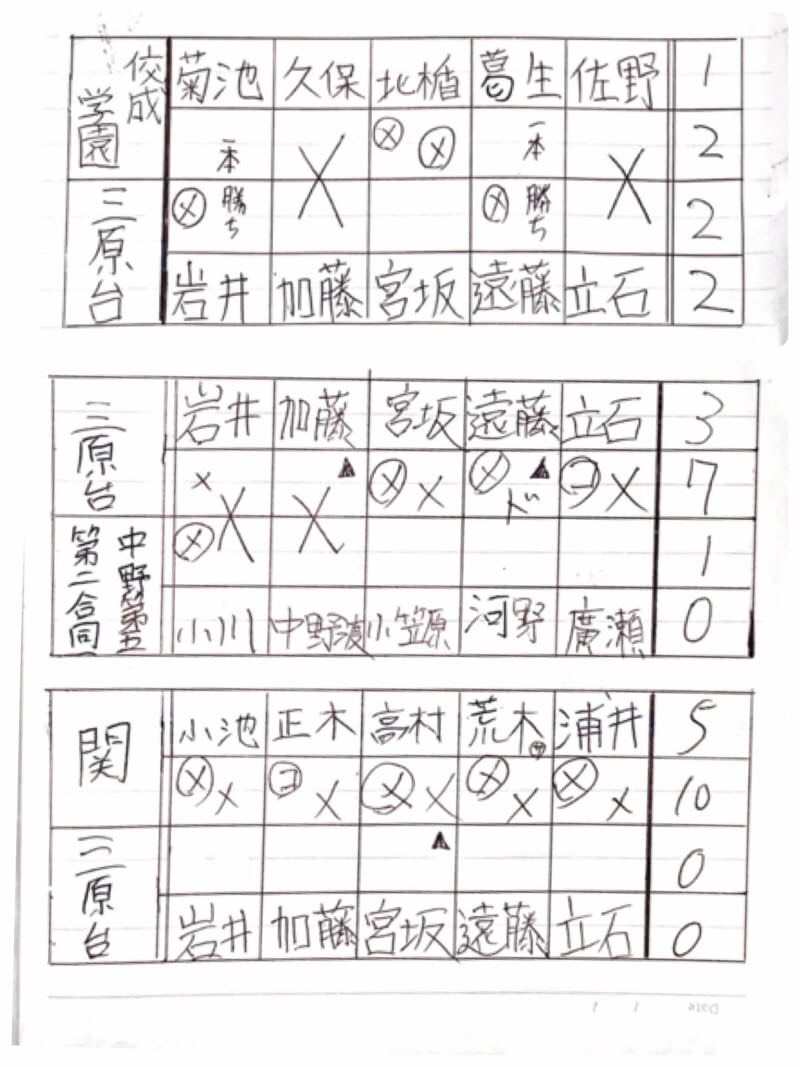 佼成学園 菊池 久保 北楯 葛生 佐野 1
一本 × ⓧ ⓧ 一本 × 2
ⓧ 勝ち ⓧ 勝ち 2
三原台 岩井 加藤 宮坂 遠藤 立石 2
三原台 岩井 加藤 宮坂 遠藤 立石 3
× × ▲ × ⓧ × ⓧ ド ▲ コ × 7
ⓧ 1
中野第五 第二合同 小川 中野渡 小笠原 河野 廣瀬 0
関 小池 正木 高村 荒木 浦井 5
ⓧ × コ × ⓧ × ⓧ × ⓧ × 10
▲ 0
三原台 岩井 加藤 宮坂 遠藤 立石 0
Date